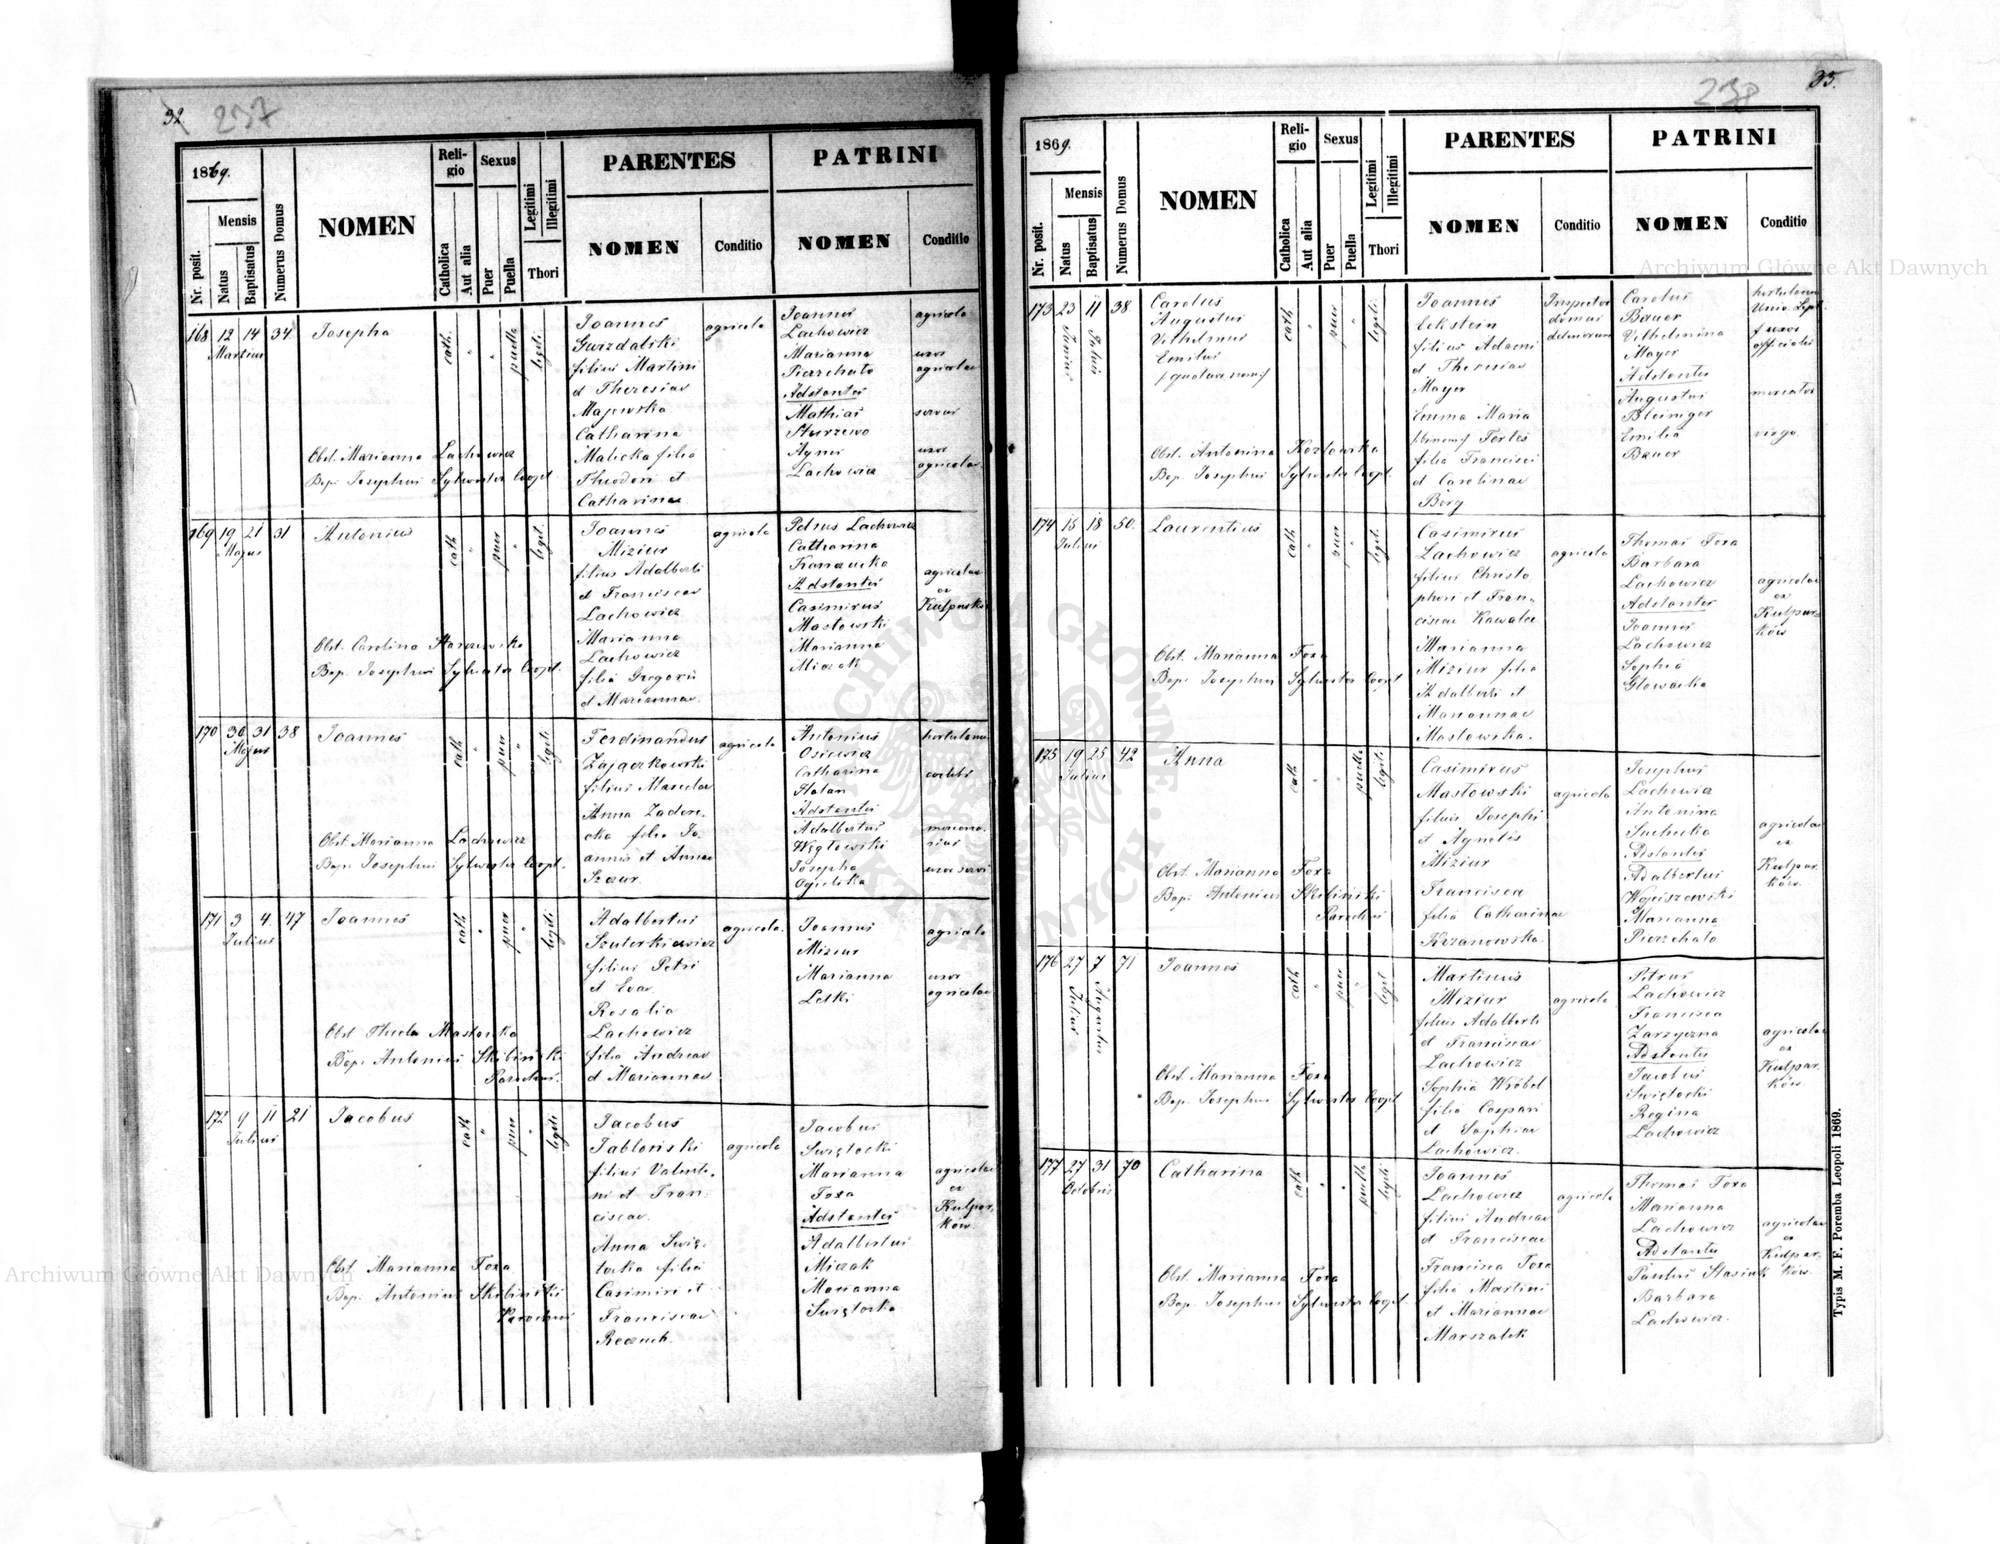 32
237
1869.
Nr. posit.
Mensis
Natus
Baptisatus
Numerus Domus
NOMEN
Religio
Catholica
Aut alia
Sexus
Puer
Puella
Legitimi
Illegitimi
Thori
PARENTES
NOMEN
Conditio
PATRINI
NOMEN
Conditio
168 12 14 34
Martius
Josepha
cath.
puella
legiti
Joannes
Gwizdalski
filius Martini
et Theresiae
Majewska
Catharina
Malicka filia
Theodori et
Catharinae
agricola
Joannes
Lachowicz
Marianna
Pierzchało
Adstantes
Mathias
Agnes
Lachowicz
agricola
uxor
agricolae
servus
uxor
agricolae
Obst. Marianna Lachowicz
Bap. Josephus Sylwester Coopt
169 19 21 31
Majus
Antonius
cath
puer
legit.
Joannes
Miziur
filius Adalberti
et Franciscae
Lachowicz
Marianna
Lachowicz
filia Gregorii
et Mariannae
agricola
Petrus Lachowicz
Catharina
Adstantes
Casimirus
Masłowski
Marianna
Miczak
agricolae
ex
Obst. Carolina
Bap. Josephus Sylwester Coopt.
170 30 31 38
Majus
Joannes
cath
puer
legiti
Ferdinandus
Zajączkowski
filius
Anna Zadore-
cka filia Jo-
annis et Annae
Szaur
agricola
Antonius
Osiewicz
Catharina
Adstantes
Adalbertus
Węgłowski
Josepha
hortulanus
mercena-
rius
uxor servi
Obst. Marianna Lachowicz
Bap. Josephus Sylwester Coopt.
171 3 4 47
Julius
Joannes
cath
puer
legiti
Adalbertus
filius Petri
et Evae
Rosalia
Lachowicz
filia Andreae
et Mariannae
agricola.
Joannes
Miziur
Marianna
Letki
agricola
uxor
agricolae
Obst. Thecla Masłowska
Bap. Antonius Skibiński
Parochus.
172 9 11 21
Julius
Jacobus
cath
puer
legiti
Jacobus
Jabłoński
filius Valenti-
ni et Fran-
ciscae.
Anna Świę-
tocka filia
Casimiri et
Franciscae
agricola
Jacobus
Świętocki
Marianna
Foxa
Adstantes
Adalbertus
Miczak
Marianna
Świętocka
agricolae
ex
Kulpar-
ków.
Obst. Marianna Foxa
Bap. Antonius Skibiński
Parochus
238
33.
1869.
Nr. posit.
Mensis
Natus
Baptisatus
Numerus Domus
NOMEN
Religio
Catholica
Aut alia
Sexus
Puer
Puella
Legitimi
Illegitimi
Thori
PARENTES
NOMEN
Conditio
PATRINI
NOMEN
Conditio
173 23 11 38
Junius
Julius
Carolus
Augustus
Vilhelmus
Emilus
cath
puer
legiti.
Joannes
Eckstein
filius Adami
et Theresiae
Mayer
Emma Maria
Fertes
filia Francisci
et Carolinae
Berg
Inspector
domus
Carolus
Bauer
Vilhelmina
Mayer
Adstantes
Augustus
Bleiniger
Emilia
Bauer
hortulanus
uxor
officialis
mercator
virgo.
Obst. Antonina Kozłowska
Bap. Josephus Sylwester Coopt.
174 15 18 50.
Julius
Laurentius
cath
puer
legit.
Casimirus
Lachowicz
filius Christo
phori et Fran-
ciscae Kawalec
Marianna
Miziur filia
Adalberti et
Mariannae
Masłowska.
agricola
Thomas Foxa
Barbara
Lachowicz
Adstantes
Joannes
Lachowicz
Sophia
Głowacka
agricolae
ex
Kulpar-
ków
Obst. Marianna Foxa
Bap. Josephus Sylwester Coopt
175 19 25 42
Julius
Anna
cath
puella
legiti
Casimirus
Masłowski
filius Josephi
et Agnetis
Miziur
Francisca
filia Catharinae
Krzanowska.
agricola
Josephus
Lachowicz
Antonina
Suchecka
Adstantes
Adalbertus
Wojciszewski
Marianna
Pierzchało
agricolae
ex
Kulpar-
ków.
Obst. Marianna Foxa
Bap. Antonius Skibiński
Parochus
176 27 7 71
Julius
Augustus
Joannes
cath
puer
legit
Martinus
Miziur
filius Adalberti
et Franciscae
Lachowicz
Sophia Wróbel
filia Caspari
et Sophiae
Lachowicz.
agricola
Petrus
Lachowicz
Francisca
Zarzyczna
Adstantes
Jacobus
Świętocki
Regina
Lachowicz
agricolae
ex
Kulpar-
ków.
Obst. Marianna Foxa
Bap. Josephus Sylwester Coopt
177 27 31 70
Octobris
Catharina
cath
puella
legiti
Joannes
Lachowicz
filius Andreae
et Franciscae
Francisca Foxa
filia Martini
et Mariannae
Marszałek
agricola
Thomas Foxa
Marianna
Lachowicz
Adstantes
Paulus Stasiuk
Barbara
Lachowicz.
agricolae
ex
Kulpar-
ków.
Obst. Marianna Foxa
Bap. Josephus Sylwester Coopt.
Typis M. F. Poremba Leopoli 1869.
Archiwum Główne Akt Dawnych
Archiwum Główne Akt Dawnych
ARCHIWUM GŁÓWNE AKT DAWNYCH